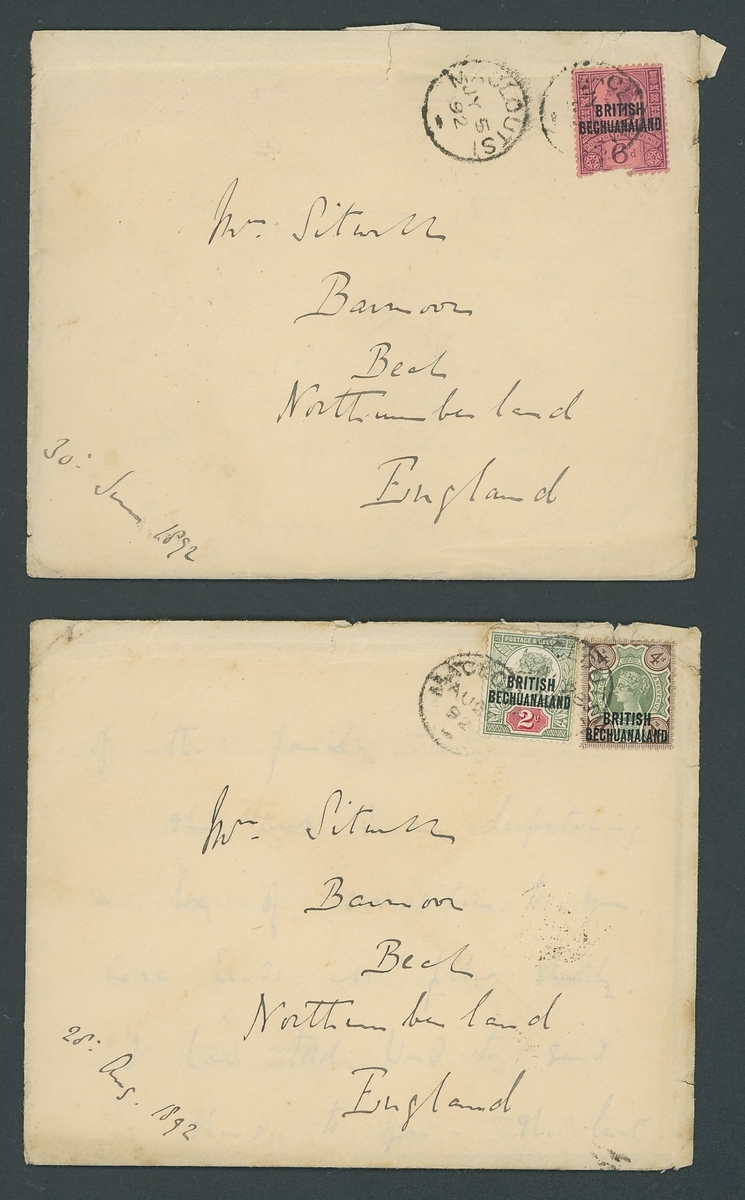 MACLOUTSI
JY 5
92
BRITISH
BECHUANALAND
6d
Mrs. Sitwell
Barmoor
Beal
Northumberland
England
30: June 1892
POSTAGE &
BRITISH
BECHUANALAND
2d
4d
BRITISH
BECHUANALAND
MACLO
AUG
92
Mrs. Sitwell
Barmoor
Beal
Northumberland
England
28: Aug. 1892